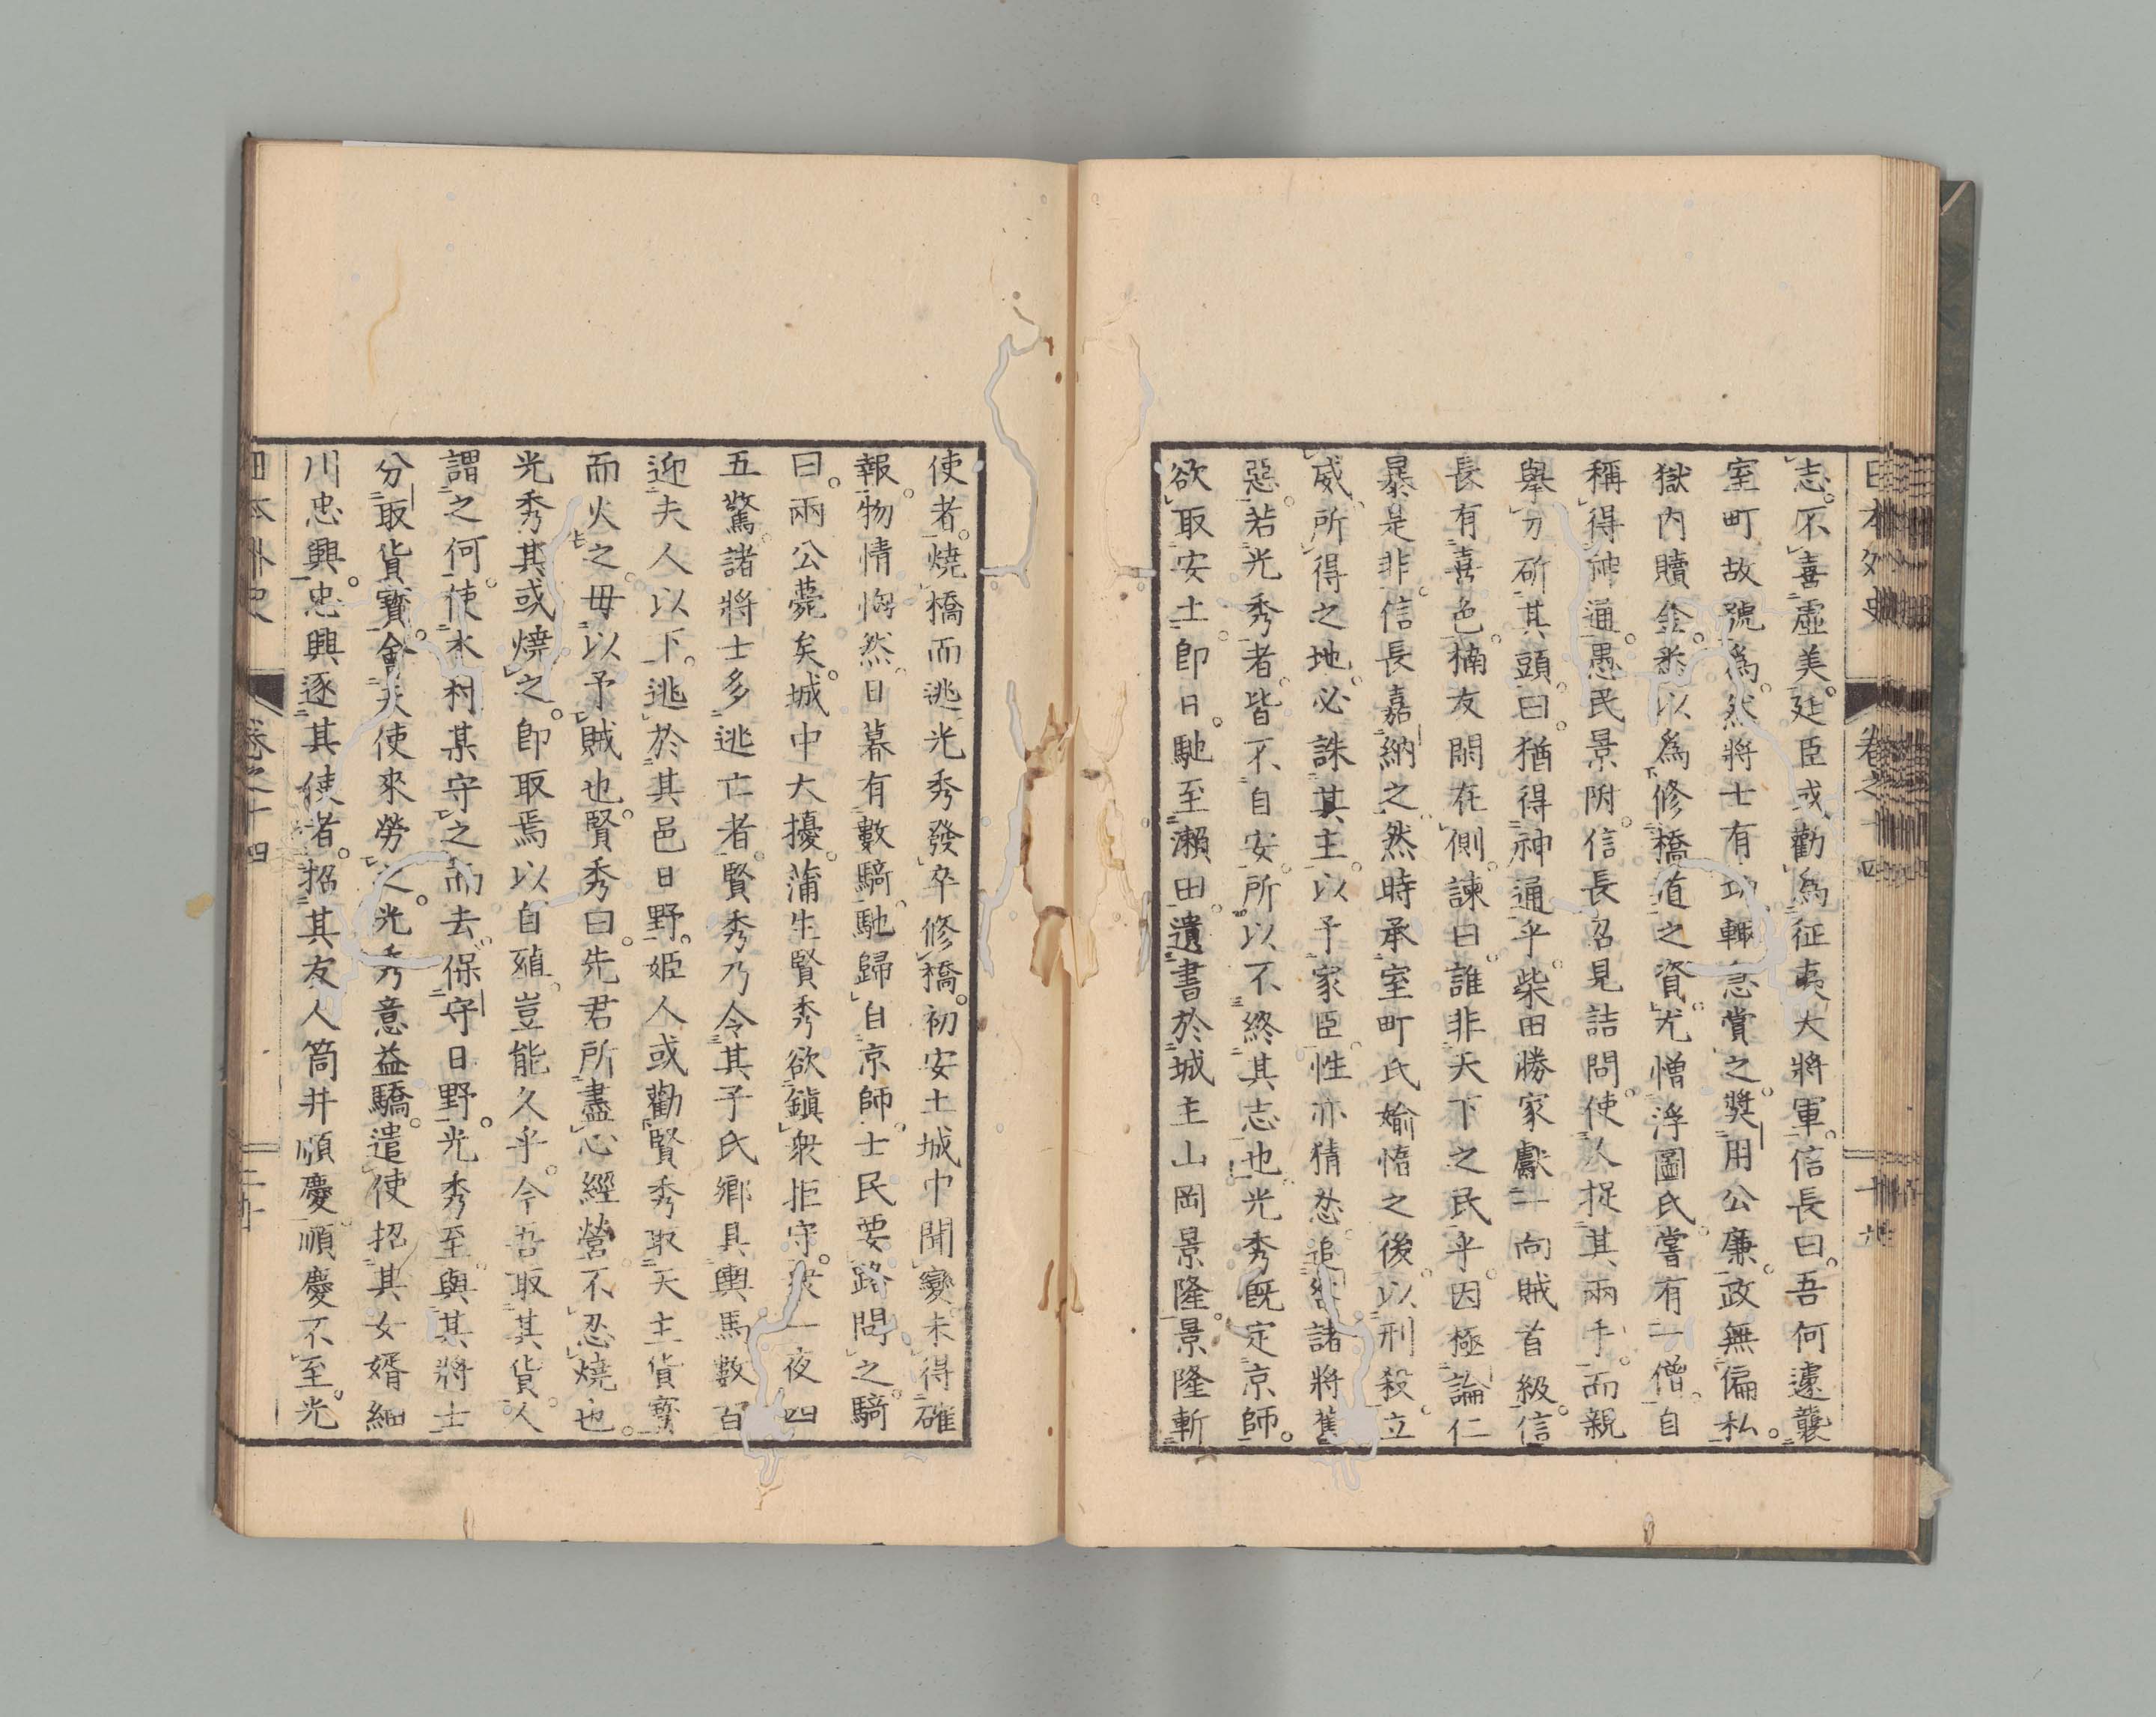 日本外史 卷之十四
志。不喜虛美。廷臣或勸爲征夷大將軍。信長曰。吾何遽襲
室町故號爲。然將士有功。輒急賞之。奬用公廉。政無偏私。
獄內贖金。悉以爲修橋道之資。尤憎浮圖氏。嘗有一僧。自
稱得神通。愚民景附。信長召見詰問。使人捉其兩手。而親
擧刀斫其頭。曰。猶得神通乎。柴田勝家獻一向賊首級。信
長有喜色。楠友閑在側。諫曰。誰非天下之民乎。因極論仁
暴是非。信長嘉納之。然時承室町氏媮惰之後。以刑殺立
威。所得之地。必誅其主。以予家臣。性亦猜忍。追咎諸將舊
惡。若光秀者。皆不自安。所以不終其志也。光秀旣定京師。
欲取安土。卽日。馳至瀨田。遺書於城主山岡景隆。景隆斬
使者。燒橋而逃。光秀發卒修橋。初安土城中聞變。未得確
報。物情恟然。日暮有數騎。馳歸自京師。士民要路問之。騎
曰。兩公薨矣。城中大擾。蒲生賢秀欲鎭衆拒守。衆一夜四
五驚。諸將士多逃亡者。賢秀乃令其子氏鄕具輿馬數百
迎夫人以下。逃於其邑日野。姬人或勸賢秀取天主貨寶
而火之。毋以予賊也。賢秀曰。先君所盡心經營。不忍燒也。
光秀其或燒之。卽取焉以自殖。豈能久乎。今吾取其貨。人
謂之何。使木村某守之而去。保守日野。光秀至。與其將士
分取貨寶。會天使來勞之。光秀意益驕。遣使招其女婿細
川忠興。忠興逐其使者。招其友人筒井順慶。順慶不至。光
日本外史 卷之十四